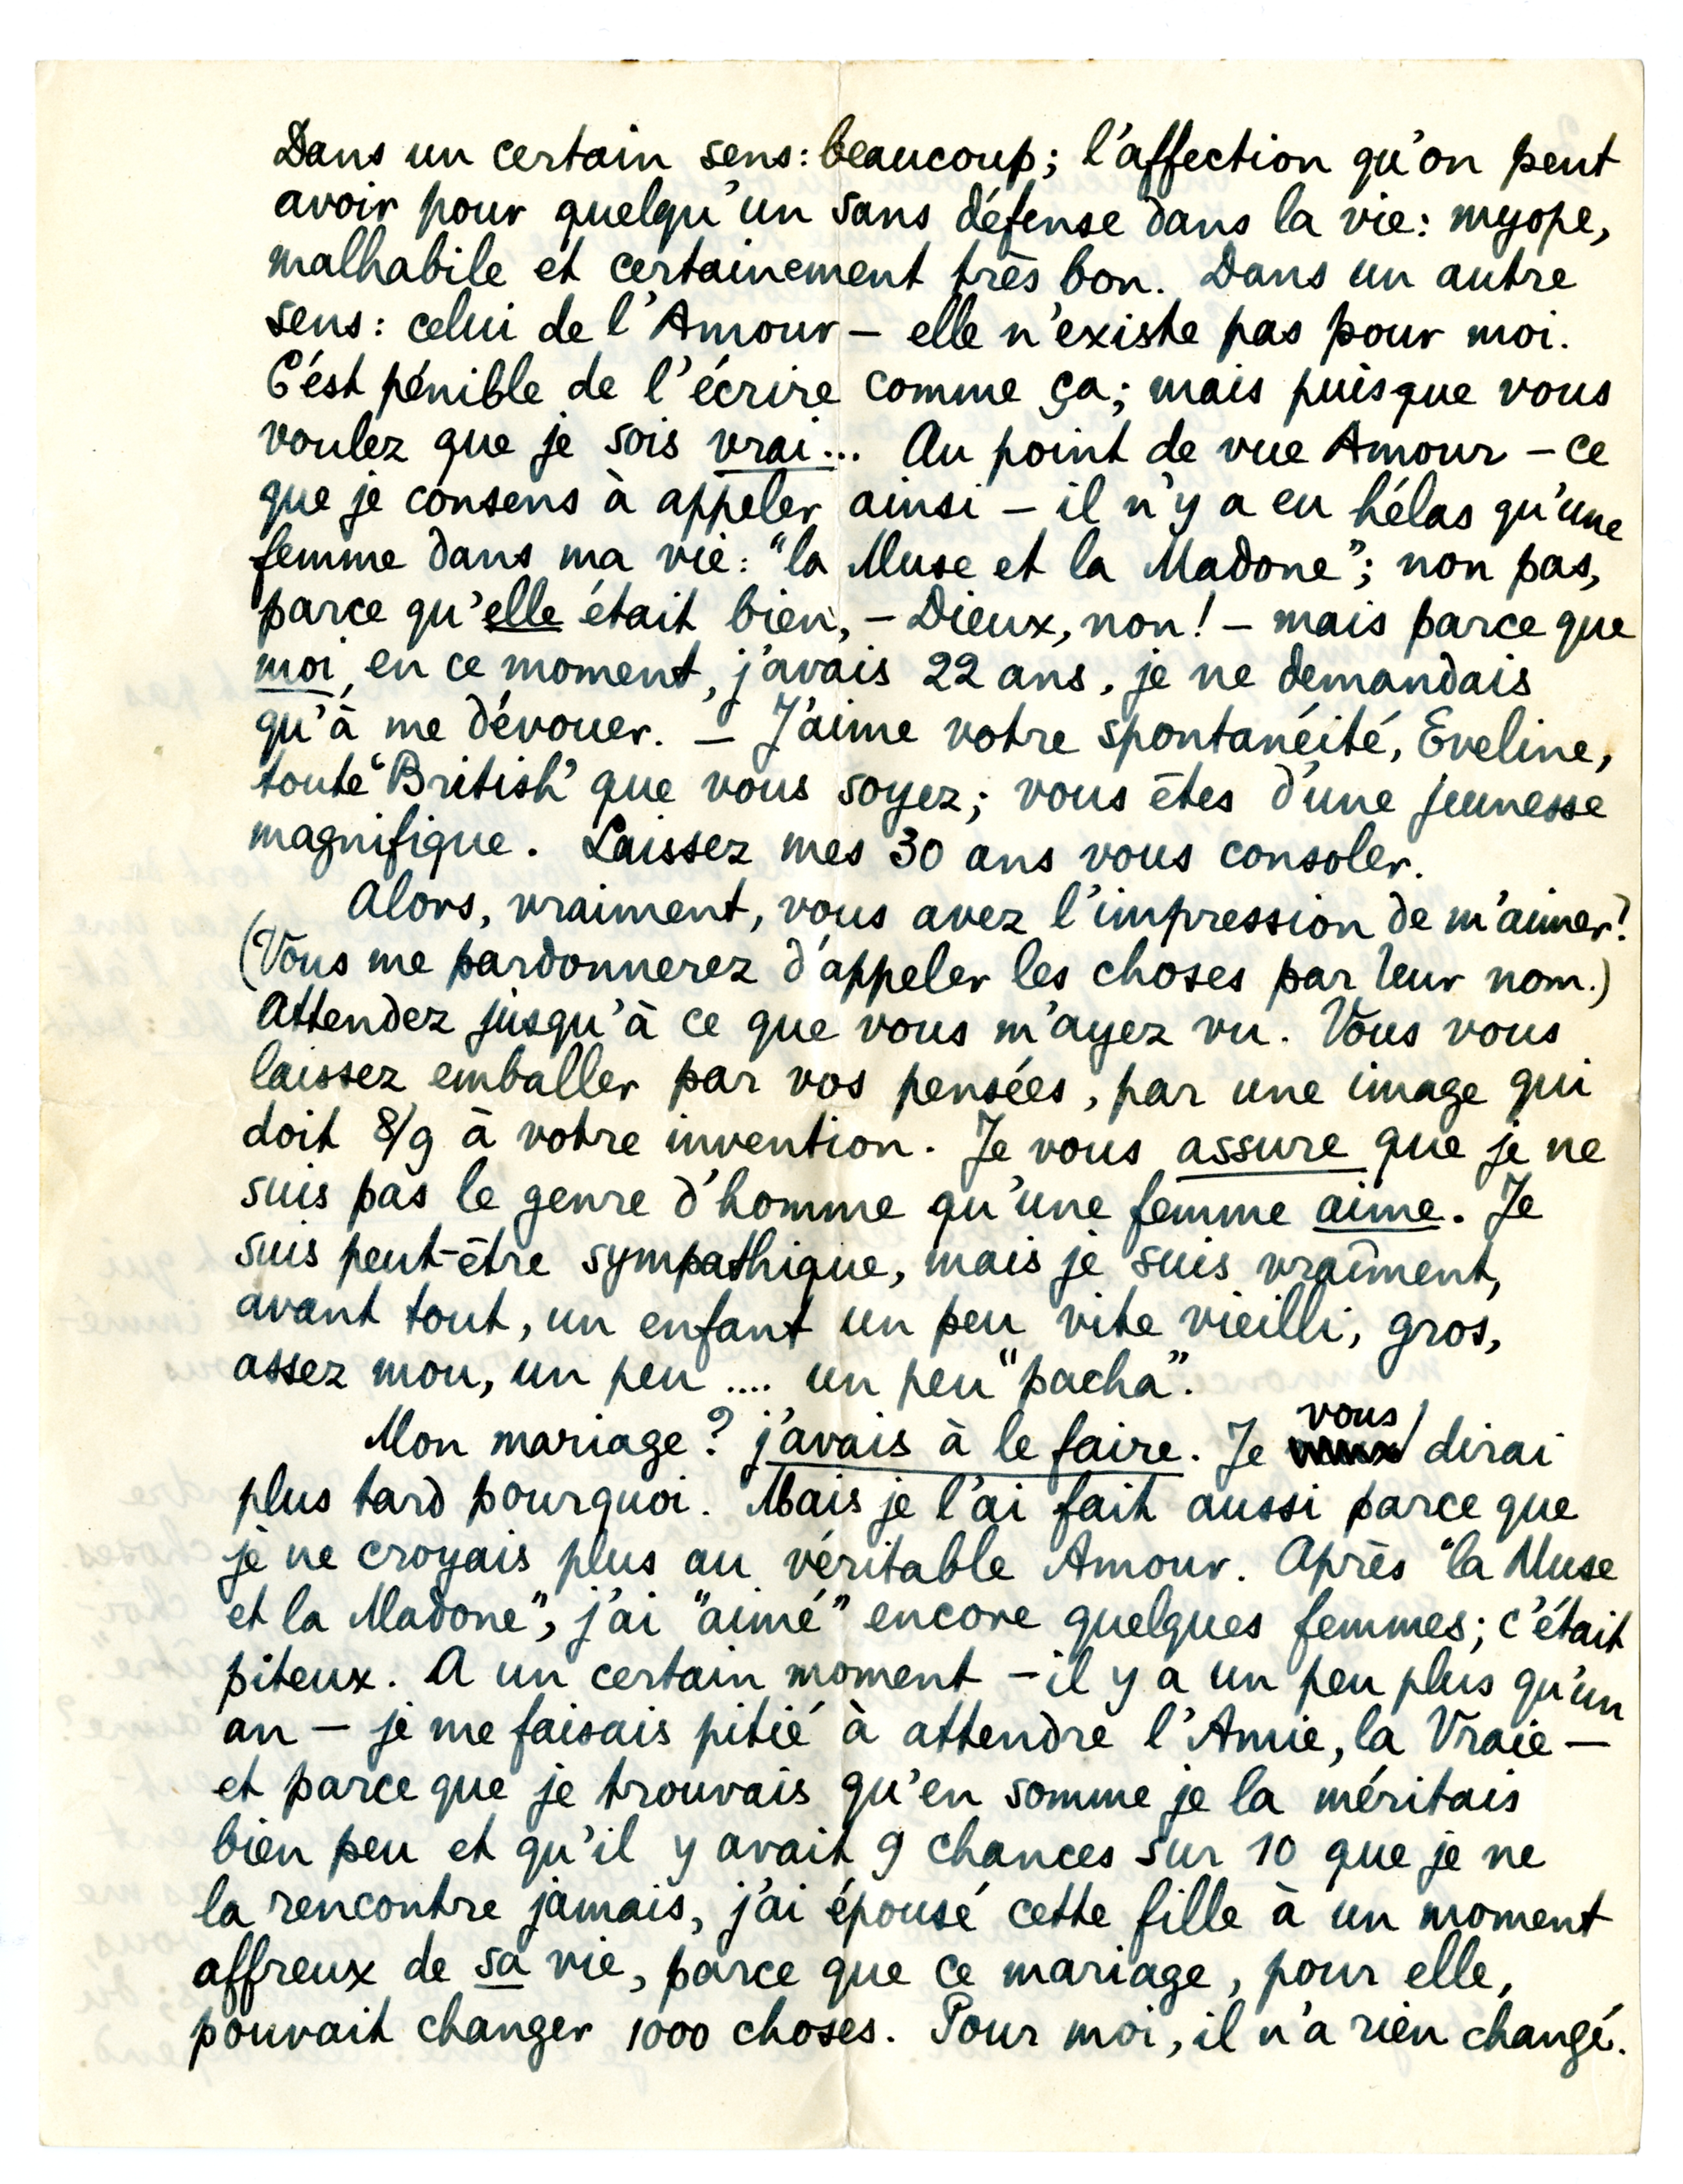 Dans un certain sens: beaucoup; l'affection qu'on peut
avoir pour quelqu'un sans défense dans la vie: myope,
malhabile et certainement très bon. Dans un autre
sens: celui de l'Amour — elle n'existe pas pour moi.
C'est pénible de l'écrire comme ça; mais puisque vous
voulez que je sois vrai... Au point de vue Amour — ce
que je consens à appeler ainsi — il n'y a eu hélas qu'une
femme dans ma vie: "la Muse et la Madone"; non pas,
parce qu'elle était bien, — Dieux, non! — mais parce que
moi, en ce moment, j'avais 22 ans, je ne demandais
qu'à me dévouer. — J'aime votre spontanéité, Eveline,
toute "British" que vous soyez; vous êtes d'une jeunesse
magnifique. Laissez mes 30 ans vous consoler.
Alors, vraiment, vous avez l'impression de m'aimer?
(Vous me pardonnerez d'appeler les choses par leur nom.)
Attendez jusqu'à ce que vous m'ayez vu. Vous vous
laissez emballer par vos pensées, par une image qui
doit 8/9 à votre invention. Je vous assure que je ne
suis pas le genre d'homme qu'une femme aime. Je
suis peut-être sympathique, mais je suis vraiment,
avant tout, un enfant un peu vite vieilli, gros,
assez mou, un peu .... un peu "pacha".
Mon mariage? j'avais à le faire. Je vous dirai
plus tard pourquoi. Mais je l'ai fait aussi parce que
je ne croyais plus au véritable Amour. Après "la Muse
et la Madone", j'ai "aimé" encore quelques femmes; c'était
piteux. A un certain moment — il y a un peu plus qu'un
an — je me faisais pitié à attendre l'Amie, la Vraie —
et parce que je trouvais qu'en somme je la méritais
bien peu et qu'il y avait 9 chances sur 10 que je ne
la rencontre jamais, j'ai épousé cette fille à un moment
affreux de sa vie, parce que ce mariage, pour elle,
pouvait changer 1000 choses. Pour moi, il n'a rien changé.